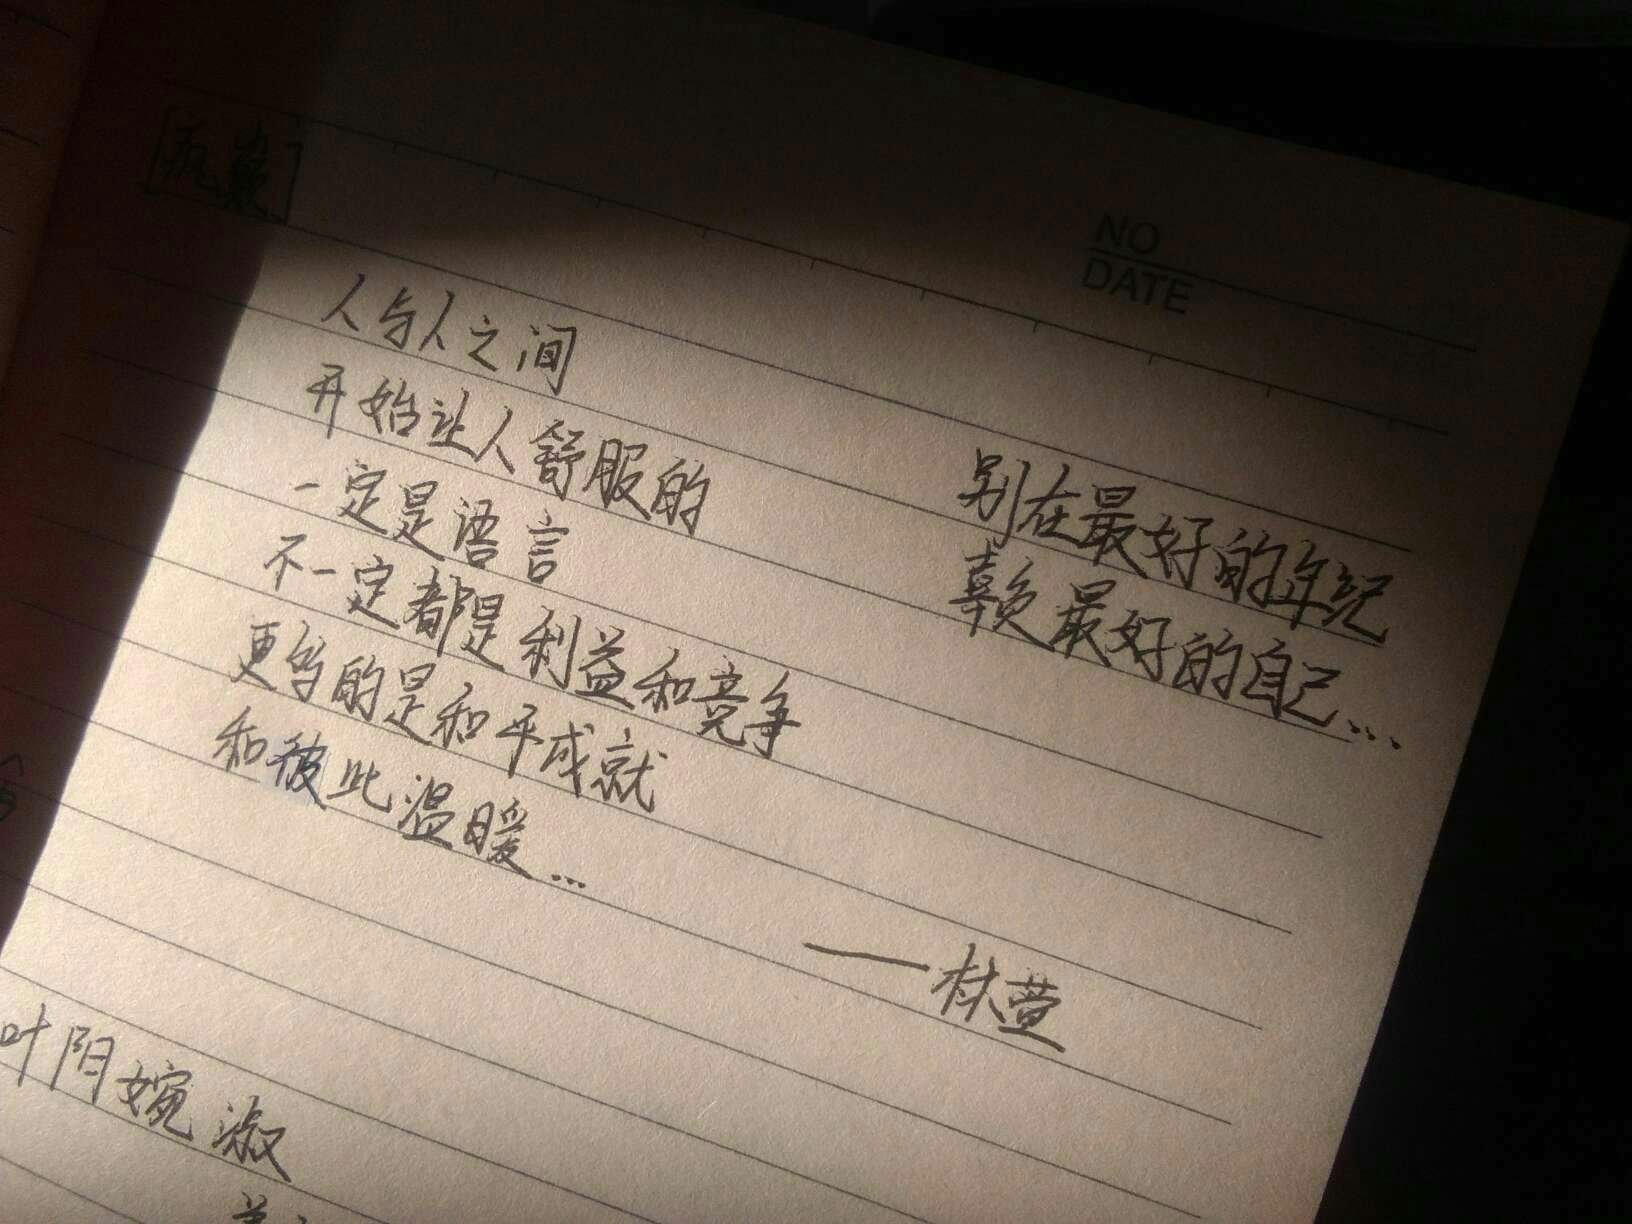 NO
DATE
人与人之间
开始让人舒服的
一定是语言
不一定都是利益和竞争
更多的是和平成就
和彼此温暖...
别在最好的年纪
辜负最好的自己...
——林萱
叶阴婉淑